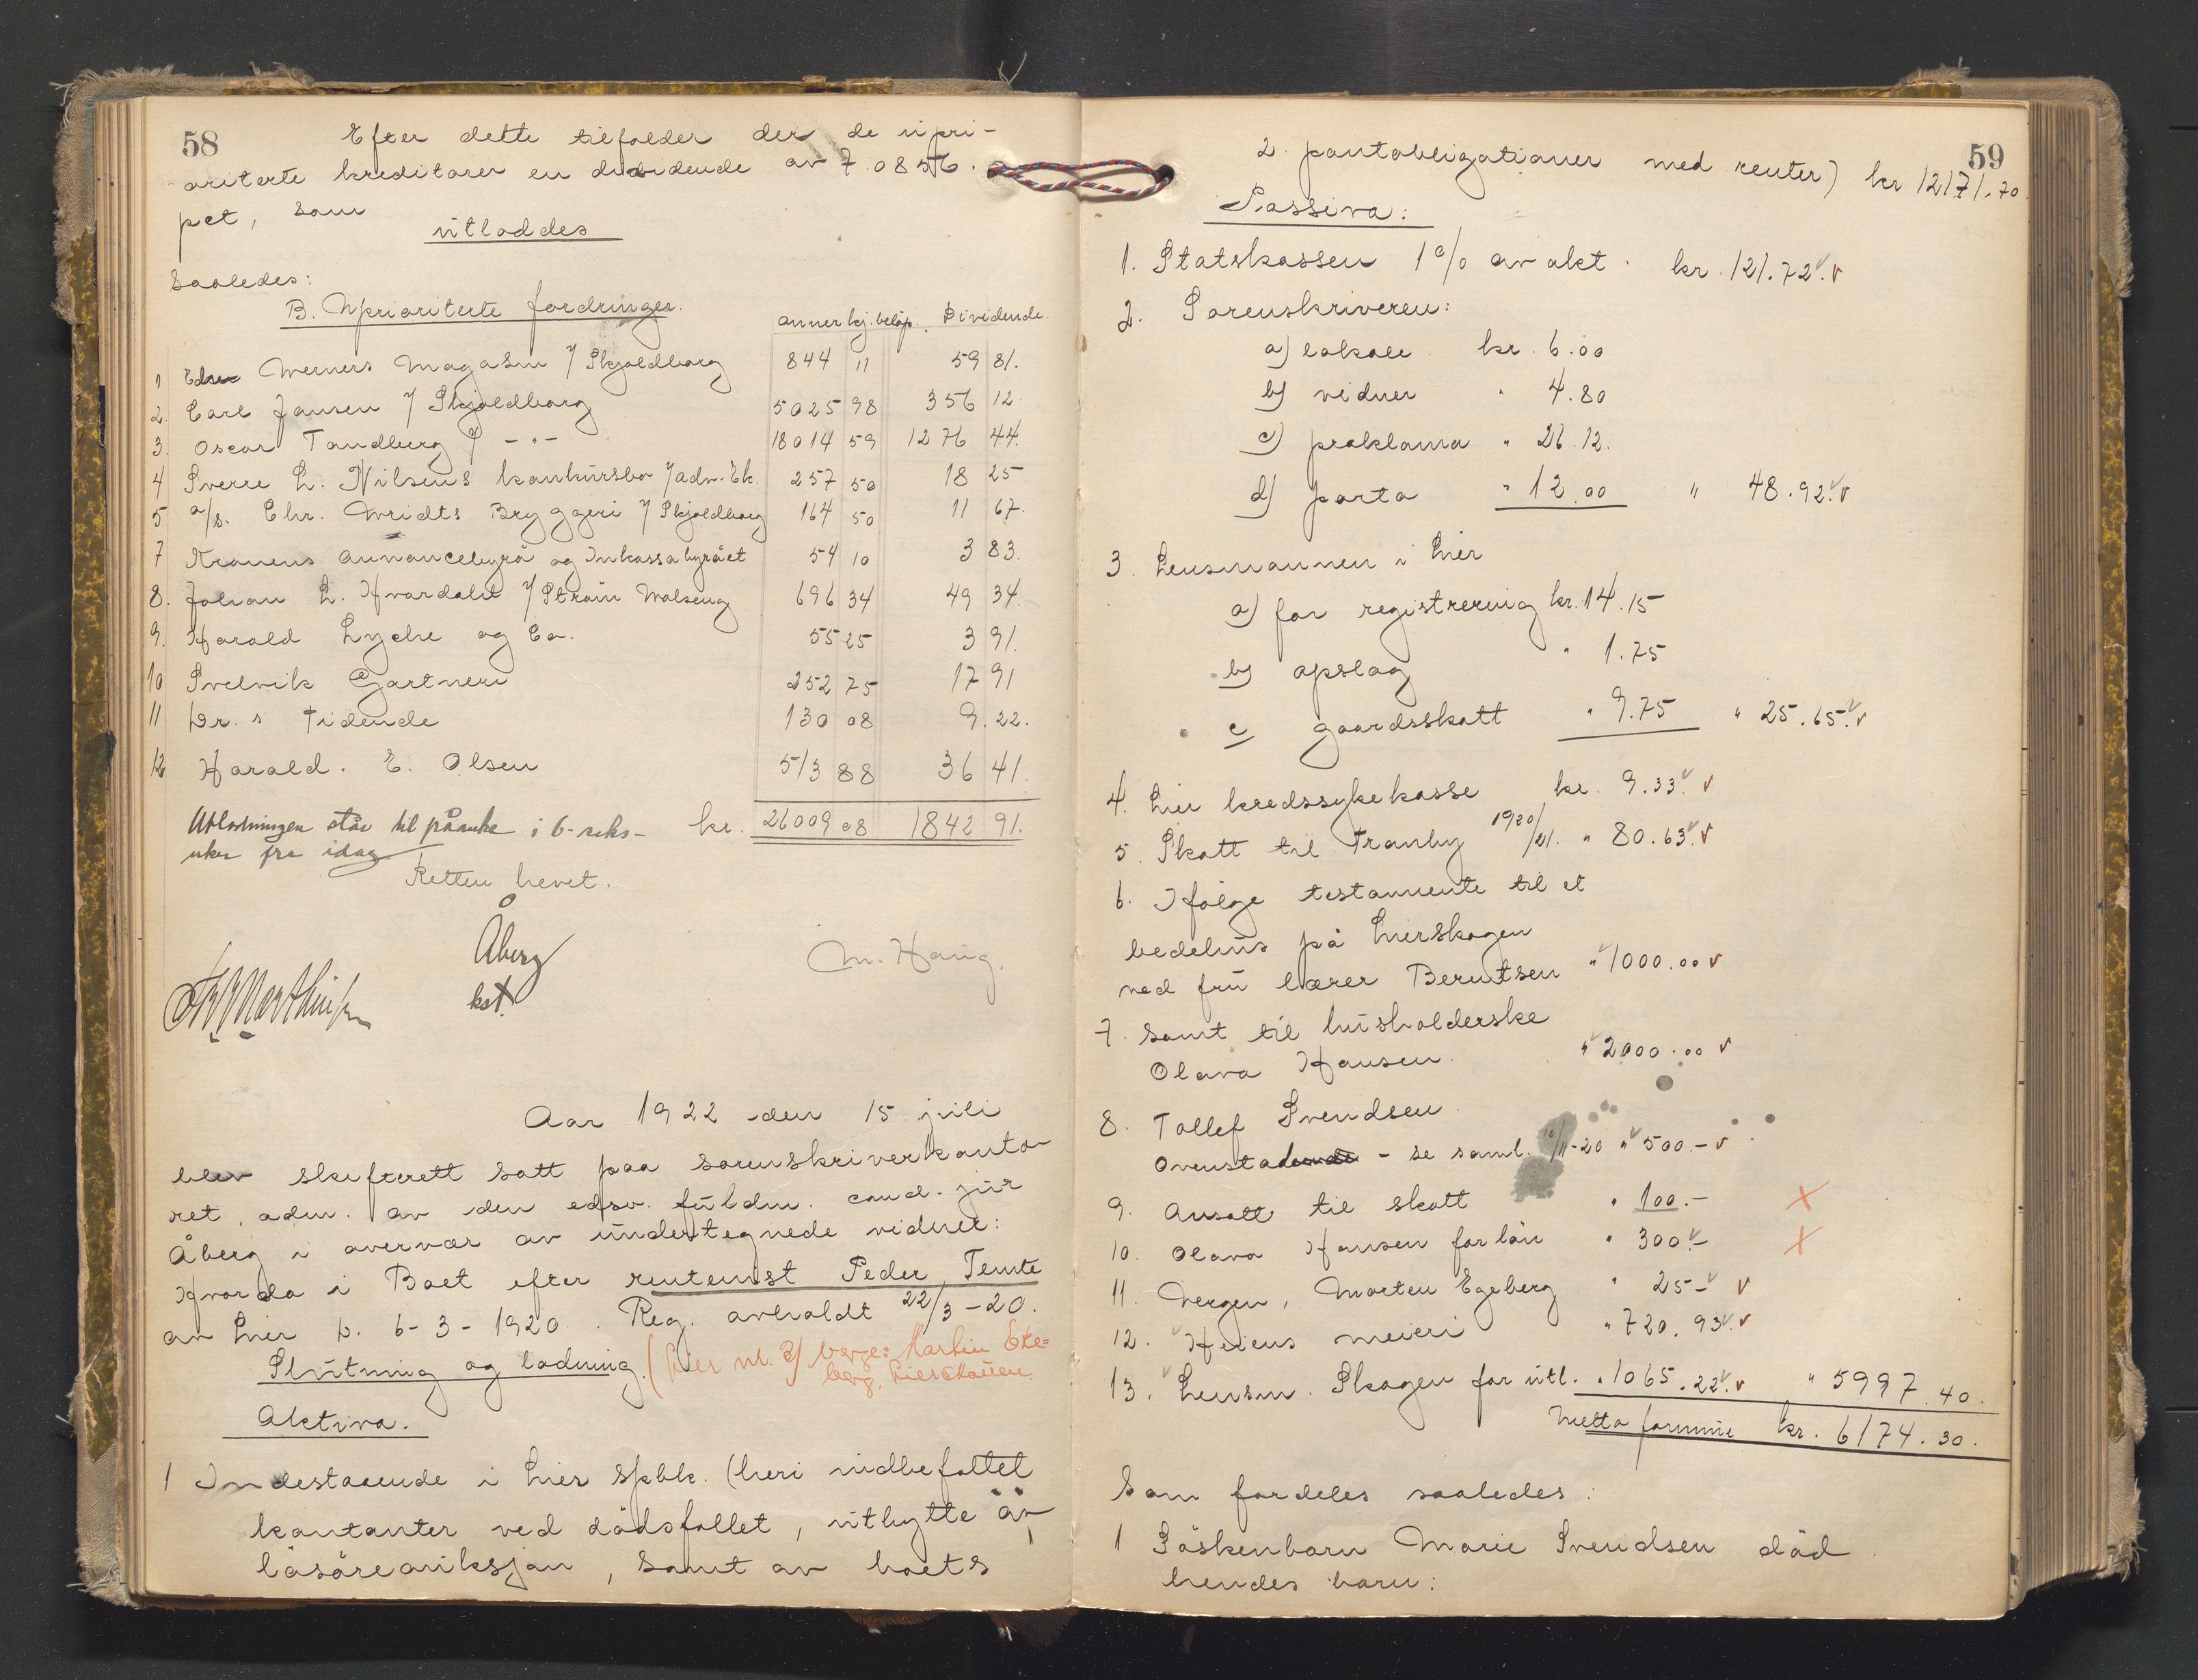 58
Efter dette tilfalder der de upri-
oriterte kreditorer en dividende av 7.0856.
pct, som
utloddes
saaledes:
B. Uprioriterte fordringer.
anner kj. beløp. Dividende.
1 Werners Magasin v/ Skjoldborg 844 11 59 81.
2. Carl Jansen v/ Skjoldborg 5025 98 356 12
3. Oscar Tandberg v/ -"- 18014 59 1276 44.
4 Sverre L. Nilsens konkursbo v/ adv. Ek. 257 50 18 25
5 a/s. Chr. Wridts Bryggeri v/ Skjoldborg 164 50 11 67.
7 Kronens annoncebyrå og Inkassobyrået 54 10 3 83.
8. Johan L. Hvardalet v/ Strøm Walseng 696 34 49 34.
9. Harald Lyche og Co. 55 25 3 91.
10 Svelvik Gartneri 252 75 17 91
11 Dr. s Tidende 130 08 9.22.
12 Harald. E. Olsen 513 88 36 41.
kr. 26009 08 1842 91.
Utlodningen står til påanke i 6-seks-
uker fra idag
Retten hevet.
Åberg
kst.
M. Haug.
Aar 1922 den 15 juli
blev skifterett satt paa sorenskriverkonto-
ret, adm. av den edsv. fuldm. cand. jur
Åberg i overvær av undertegnede vidner:
Hvorda i Boet efter rentenist Peder Temte
av Lier D. 6-3-1920. Reg. avholdt 22/3-20.
Slutning og lodning. (Lier nl. 8/ verge: Martin Eke=
berg, Lierskauen.
Aktiva.
1 Indestaaende i Lier Spbk. (heri indbefattet
kontanter ved dødsfallet, utbytte av
løsøreauksjon, samt av boets
59
2 pantobligationer med renter) kr 12171.70
Passiva:
1. Statskassen 1% av akt. kr. 121.72. v
2. Sorenskriveren:
a) lokale kr. 6.00
b) vidner " 4.80
c) proklama " 26.12.
d) porto " 12.00 " 48.92. v
3. Lensmannen i Lier
a) for registrering kr. 14.15
b) opslag " 1.75
c gaardsskatt " 9.75 " 25.65. v
4. Lier kredssykekasse kr. 9.33. v
5. Skatt til Tranby 1920/21. " 80.63. v
6. Ifølge testamente til et
bedehus på Lierskogen
ved fru lærer Berntsen " 1000.00 v
7. Samt til husholderske
Olava Hansen. " 2000.00 v
8. Tollef Svendsen.
Ovenstad - se saml. 10/11-20 " 500.- v
9. Ansatt til skatt " 100.- X
10. Olava Hansen for lån " 300.- X
11. Vergen, Morten Egeberg " 25- v
12. Heiens meieri " 720.93. v
13. Lensm. Skogen for utl. " 1065.22. v " 5997.40.
Netto formue kr. 6174.30.
Som fordeles saaledes:
1 Søskenbarn Marie Svendsen død
hendes barn: